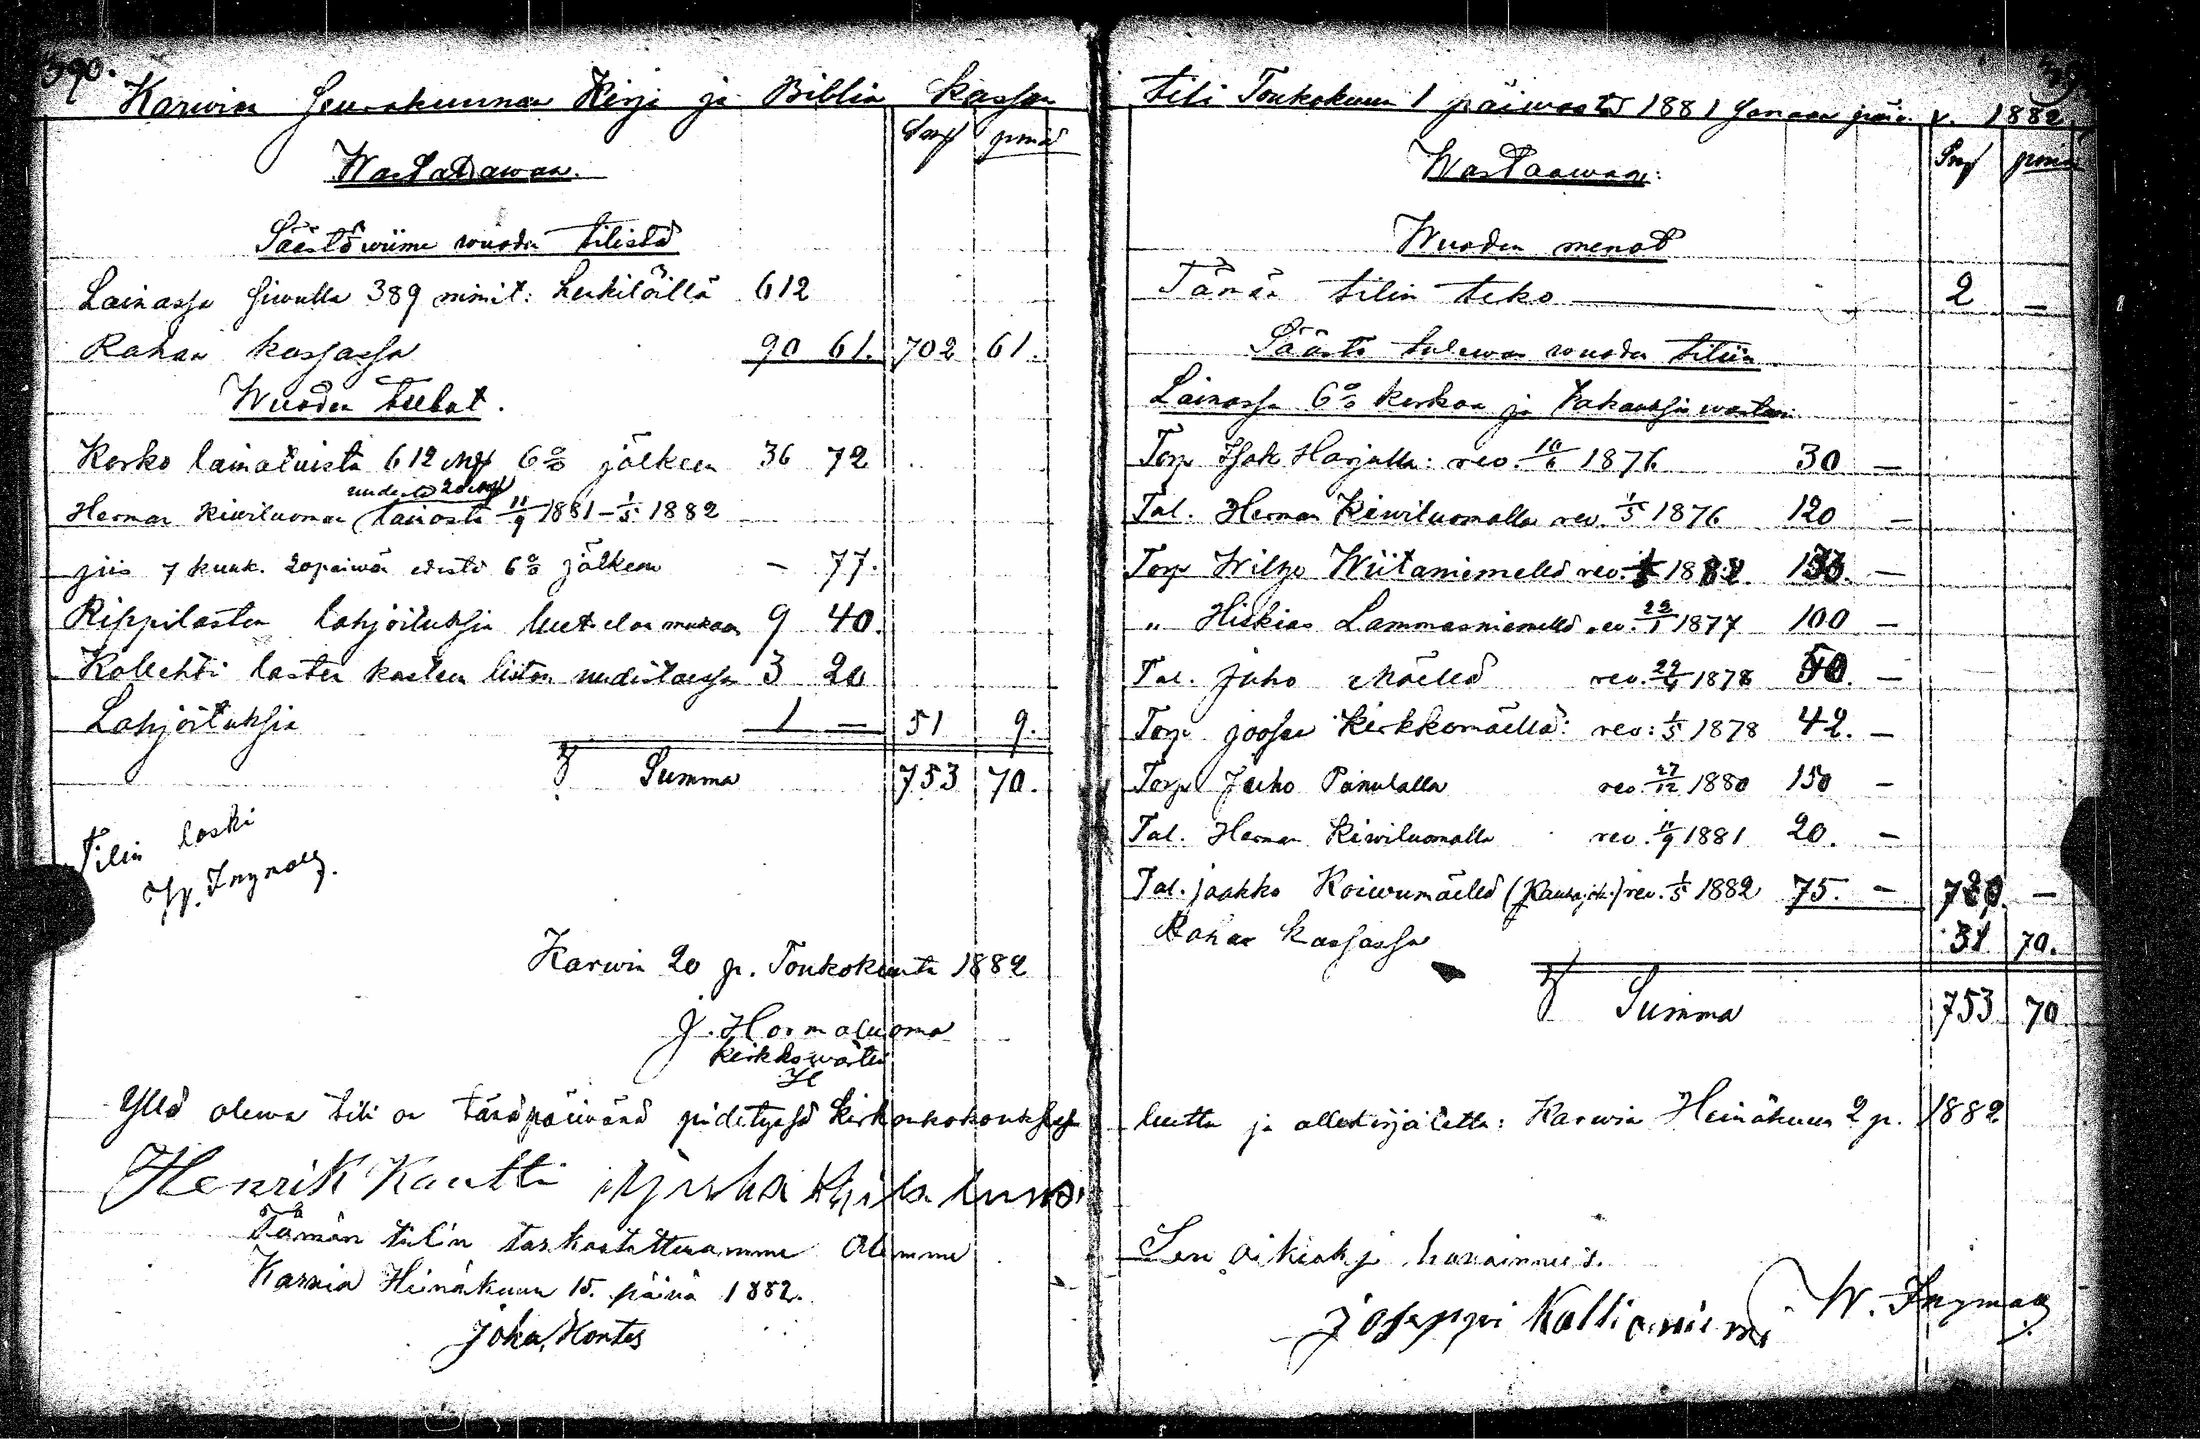 390.
Karwian Seurakunnan Kirja ja Biblia kassan
Smk pniä
Wastattawaa.
Säästö wiime wuoden tilistä
Lainassa siwulla 389 nimit: henkilöillä 612
Rahaa kassassa 90 61. 702 61.
Wuoden tulot.
Korko lainatuista 612 mk 6% jälkeen 36 72
Herman Kiwiluoman lainasta 11/9 1881 – 1/5 1882
siis 7 kuuk. 20 päiwän edestä 6% jälkeen – 77.
Rippilasten lahjoituksia luettelon mukaan 9 40.
Kollehti lasten kasteen liiton uudistaessa 3 20
Lahjoituksia 1 — 51 9.
Summa 753 70.
Tilin laski
Karwia 20 p. Toukokuuta 1882
J. Hormaluoma
kirkkowärti
Yllä olewa tili on tänäpäiwänä pidetyssä kirkonkokouksessa
Henrik Kautti
Tämän tilin tarkastettuamme Olemme
Karwia Heinäkuun 15. päivä 1882.
Juha Hontes
tili Toukokuun 1 päiwästä 1881 samaan päiw. v. 1882
Smk pniä
Wastaawaa:
Wuoden menot
Tämän tilin teko 2 —
Säästö tulewan wuoden tiliin
Lainassa 6% korkoa ja takauksia wastaan
Torp Isak Harjulla: rev. 10/6 1876 30 —
Tal. Herman Kiwiluomalla rev. 1/5 1876 120 —
Torp Wilpo Wiitaniemellä rev. 1882. 133. —
„ Hiskias Lammasniemellä rev. 1877 100 —
Tal. Juho Mäellä rev. 1878 50. —
Torp Joosua Kirkkomäellä: rev: 1/5 1878 42. —
Torp Juho Panulalla rev. 27/12 1880 150 —
Tal. Herman Kiwiluomalla rev. 11/9 1881 20. —
Tal. Jaakko Koiwumäellä (Kauhajoki.) rev. 1/5 1882 75. — 720. —
Rahaa kassassa 31 70.
Summa 753 70
luettu ja allekirjoitettu: Karwia Heinäkuun 2 p. 1882
Sen oikiaksi hawainneet.
Joseppi Kallioniemi W. Ingman